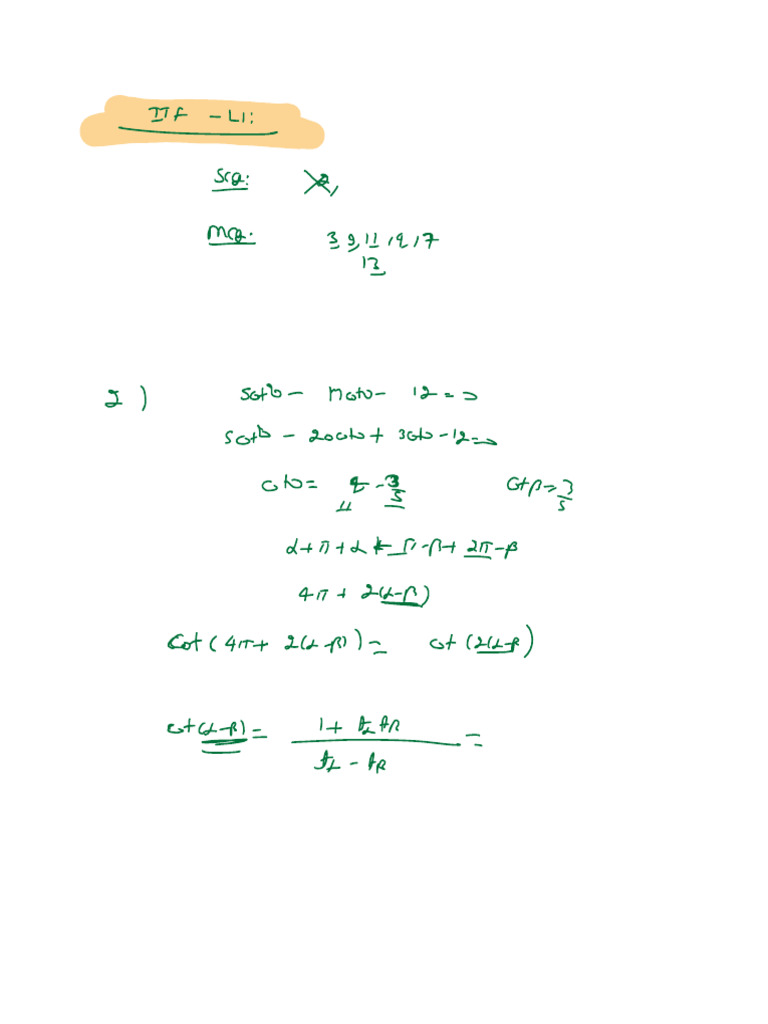 ITF - L1:
SCQ: 2,
MCQ. 3 9, 11, 12, 17
13
2) 5cot²θ - 17cotθ - 12 = 0
5cot²θ - 20cotθ + 3cotθ - 12 = 0
cotθ = 4, -3/5 cotβ = 3/5
α + π + α + π - β + 2π - β
4π + 2(α-β)
cot(4π + 2(α-β)) = cot(2(α-β))
cot(α-β) = 1 + tα tβ / tα - tβ =